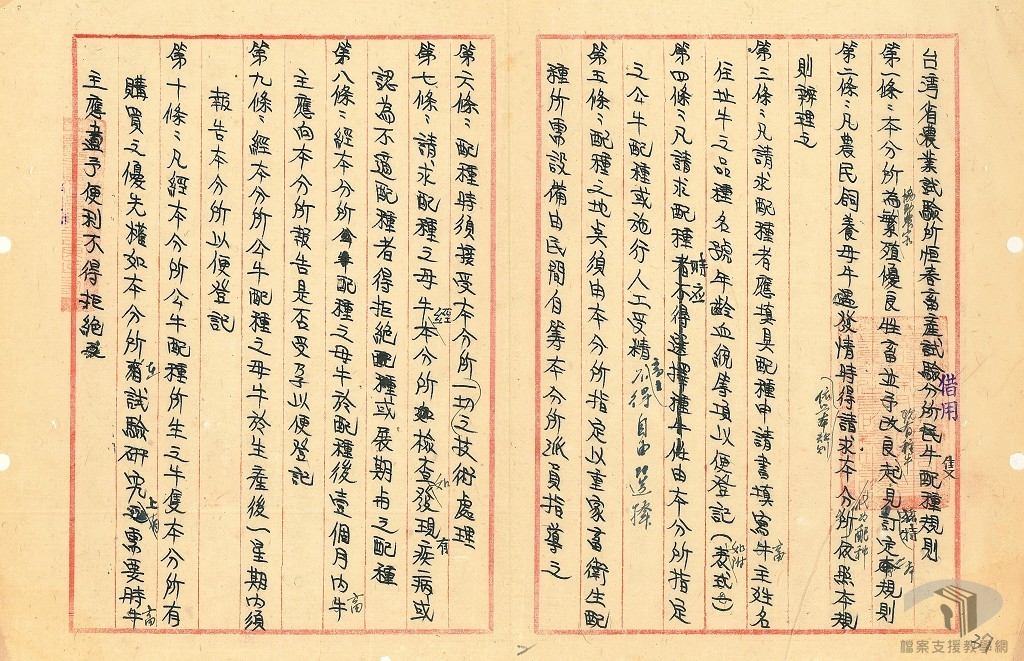 台湾省農業試驗所恒春畜産試驗分所民牛配種規則
第一條：本分所為繁殖優良牲畜並予改良起見訂定本規則
第二條：凡農民飼養母牛遇發情時得請求本分所依照本規
則辦理之
第三條：凡請求配種者應填具配種申請書填寫牛主姓名
住址牛之品種名號年齡血統等項以便登記（表式如附）
第四條：凡請求配種者不得選擇種牛性由本分所指定
時應
之公牛配種或施行人工受精畜主不得自由選擇
第五條：配種之地点須由本分所指定以重家畜衛生配
種所需設備由民間自籌本分所派員指導之
第六條：配種時須接受本分所一切之技術處理
第七條：請求配種之母牛經本分所檢查發現有疾病或
認為不適配種者得拒絕配種或展期与之配種
第八條：經本分所公牛配種之母牛於配種後壹個月内牛
畜
主應向本分所報告是否受孕以便登記
第九條：經本分所公牛配種之母牛於生產後一星期内須
報告本分所以便登記
第十條：凡經本分所公牛配種所生之牛隻本分所有
購買之優先權如本分所在試驗研究上有需要時牛
畜
主應盡予便利不得拒絕
借用
隻
畜
39
檔案支援教學網